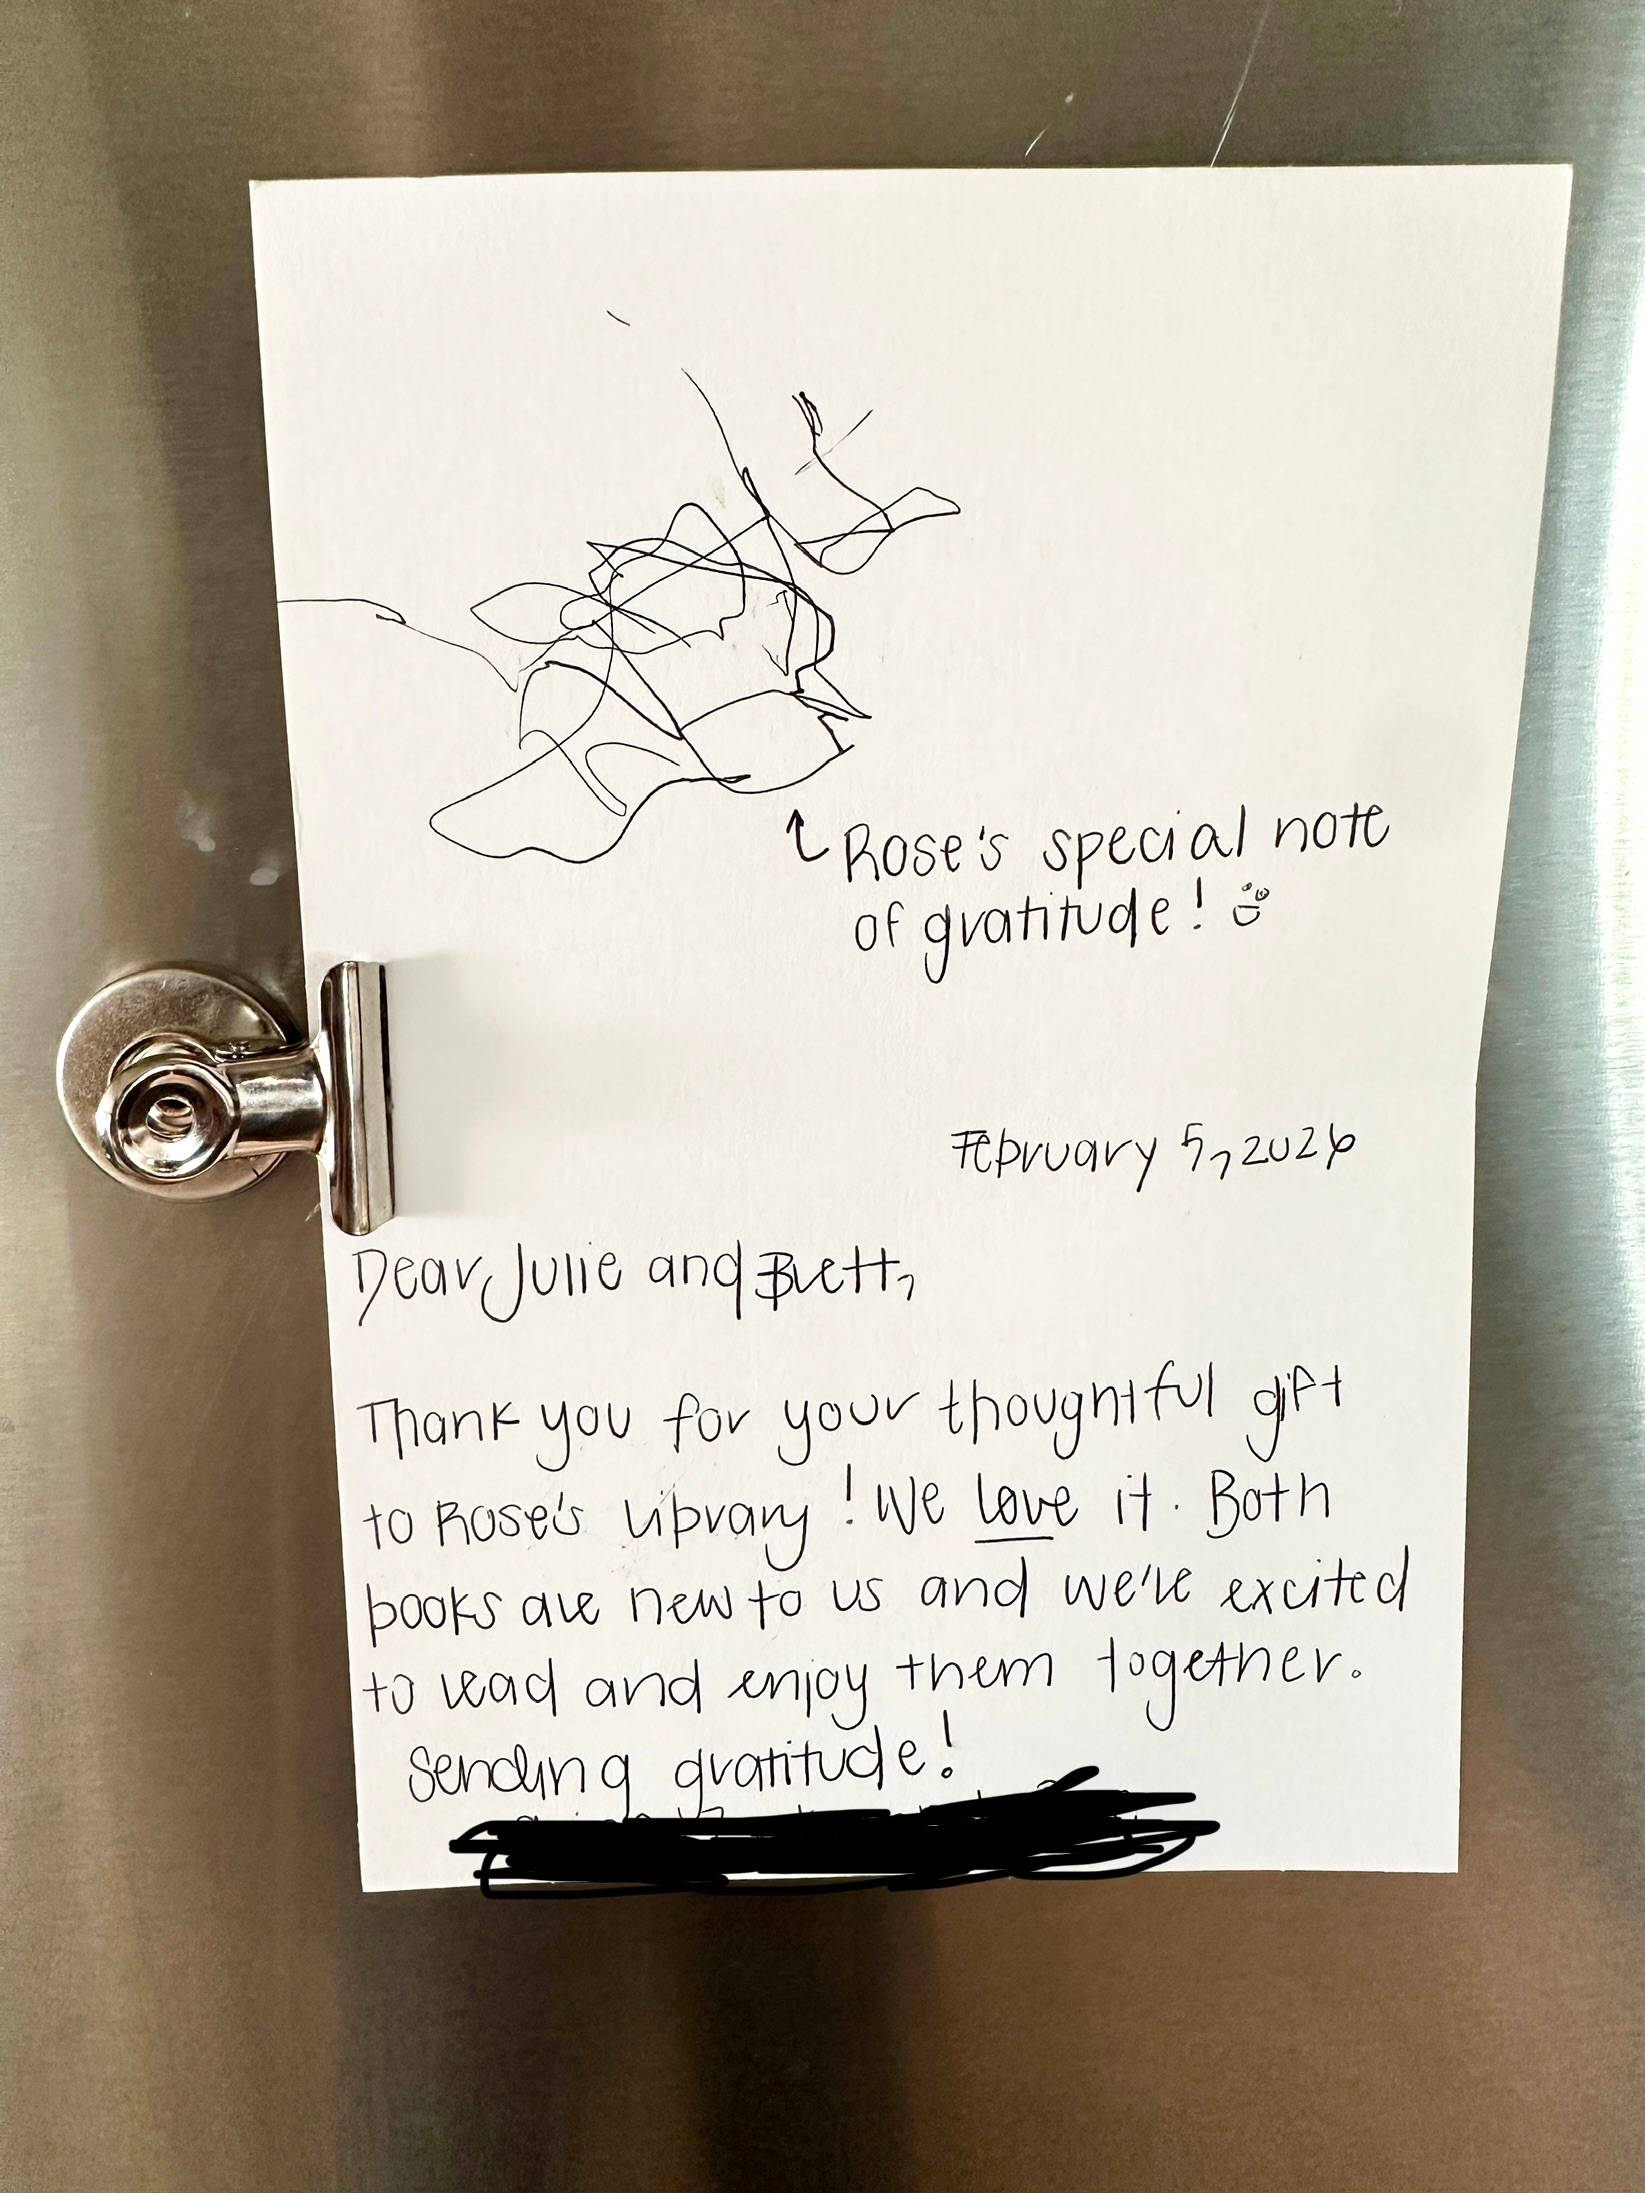 Rose's special note
of gratitude!
February 5, 2026
Dear Julie and Brett,
Thank you for your thoughtful gift
to Rose's library! We love it. Both
books are new to us and we're excited
to read and enjoy them together.
Sending gratitude!